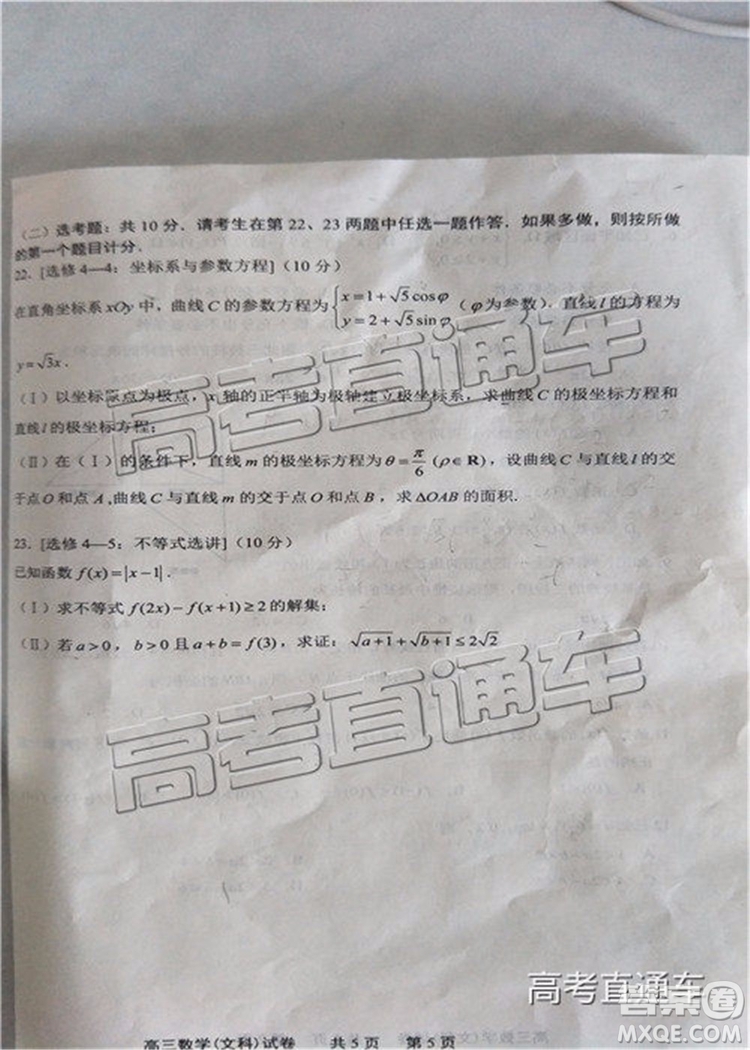 (二)选考题:共10分.请考生在第22、23两题中任选一题作答.如果多做,则按所做
的第一个题目计分.
22.[选修4—4:坐标系与参数方程](10分)
在直角坐标系xOy中,曲线C的参数方程为{x=1+√5cosφ y=2+√5sinφ(φ为参数).直线l的方程为
y=√3x.
(Ⅰ)以坐标原点为极点,x轴的正半轴为极轴建立极坐标系,求曲线C的极坐标方程和
直线l的极坐标方程;
(Ⅱ)在(Ⅰ)的条件下,直线m的极坐标方程为θ=π/6(ρ∈R),设曲线C与直线l的交
于点O和点A,曲线C与直线m的交于点O和点B,求ΔOAB的面积.
23.[选修4—5:不等式选讲](10分)
已知函数f(x)=|x−1|.
(Ⅰ)求不等式f(2x)−f(x+1)≥2的解集;
(Ⅱ)若a>0,b>0且a+b=f(3),求证:√a+1+√b+1≤2√2
高考直通车
高考直通车
高考直通车
答案卷
MXQE.COM
高三数学(文科)试卷 共5页 第5页